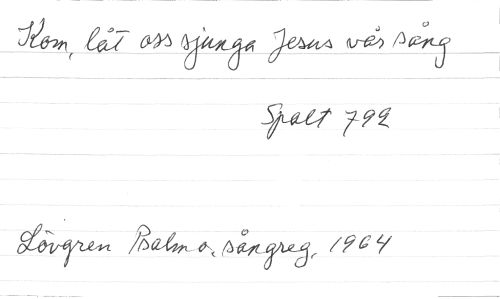 Kom, låt oss sjunga Jesus vår sång
Spalt 792
Lövgren Psalm o. sångreg. 1964